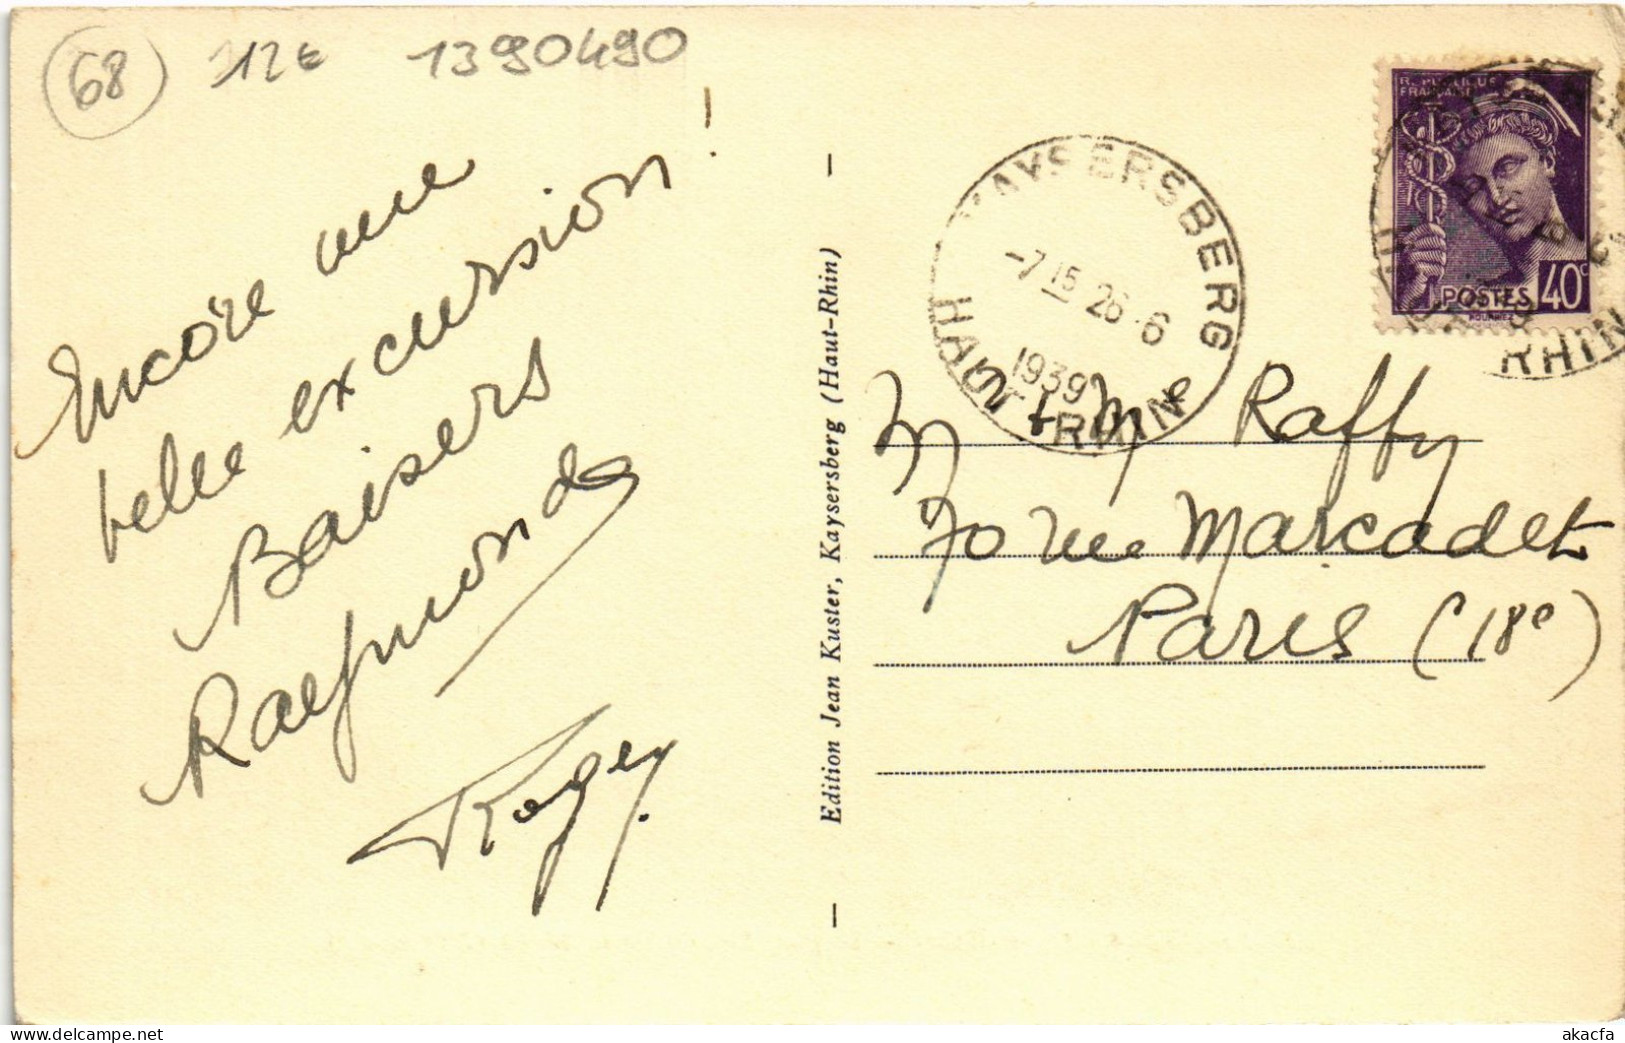 68
12€
1390490
Encore une
belle excursion !
Baisers
Raymonde
Roger
Edition Jean Kuster, Kaysersberg (Haut-Rhin)
KAYSERSBERG
-7 15 26-6
1939
HAUT-RHIN
REPUBLIQUE
FRANÇAISE
POSTES 40c
RHIN
M + Me Raffy
70 rue Marcadet
Paris (18e)
www.delcampe.net
akacfa